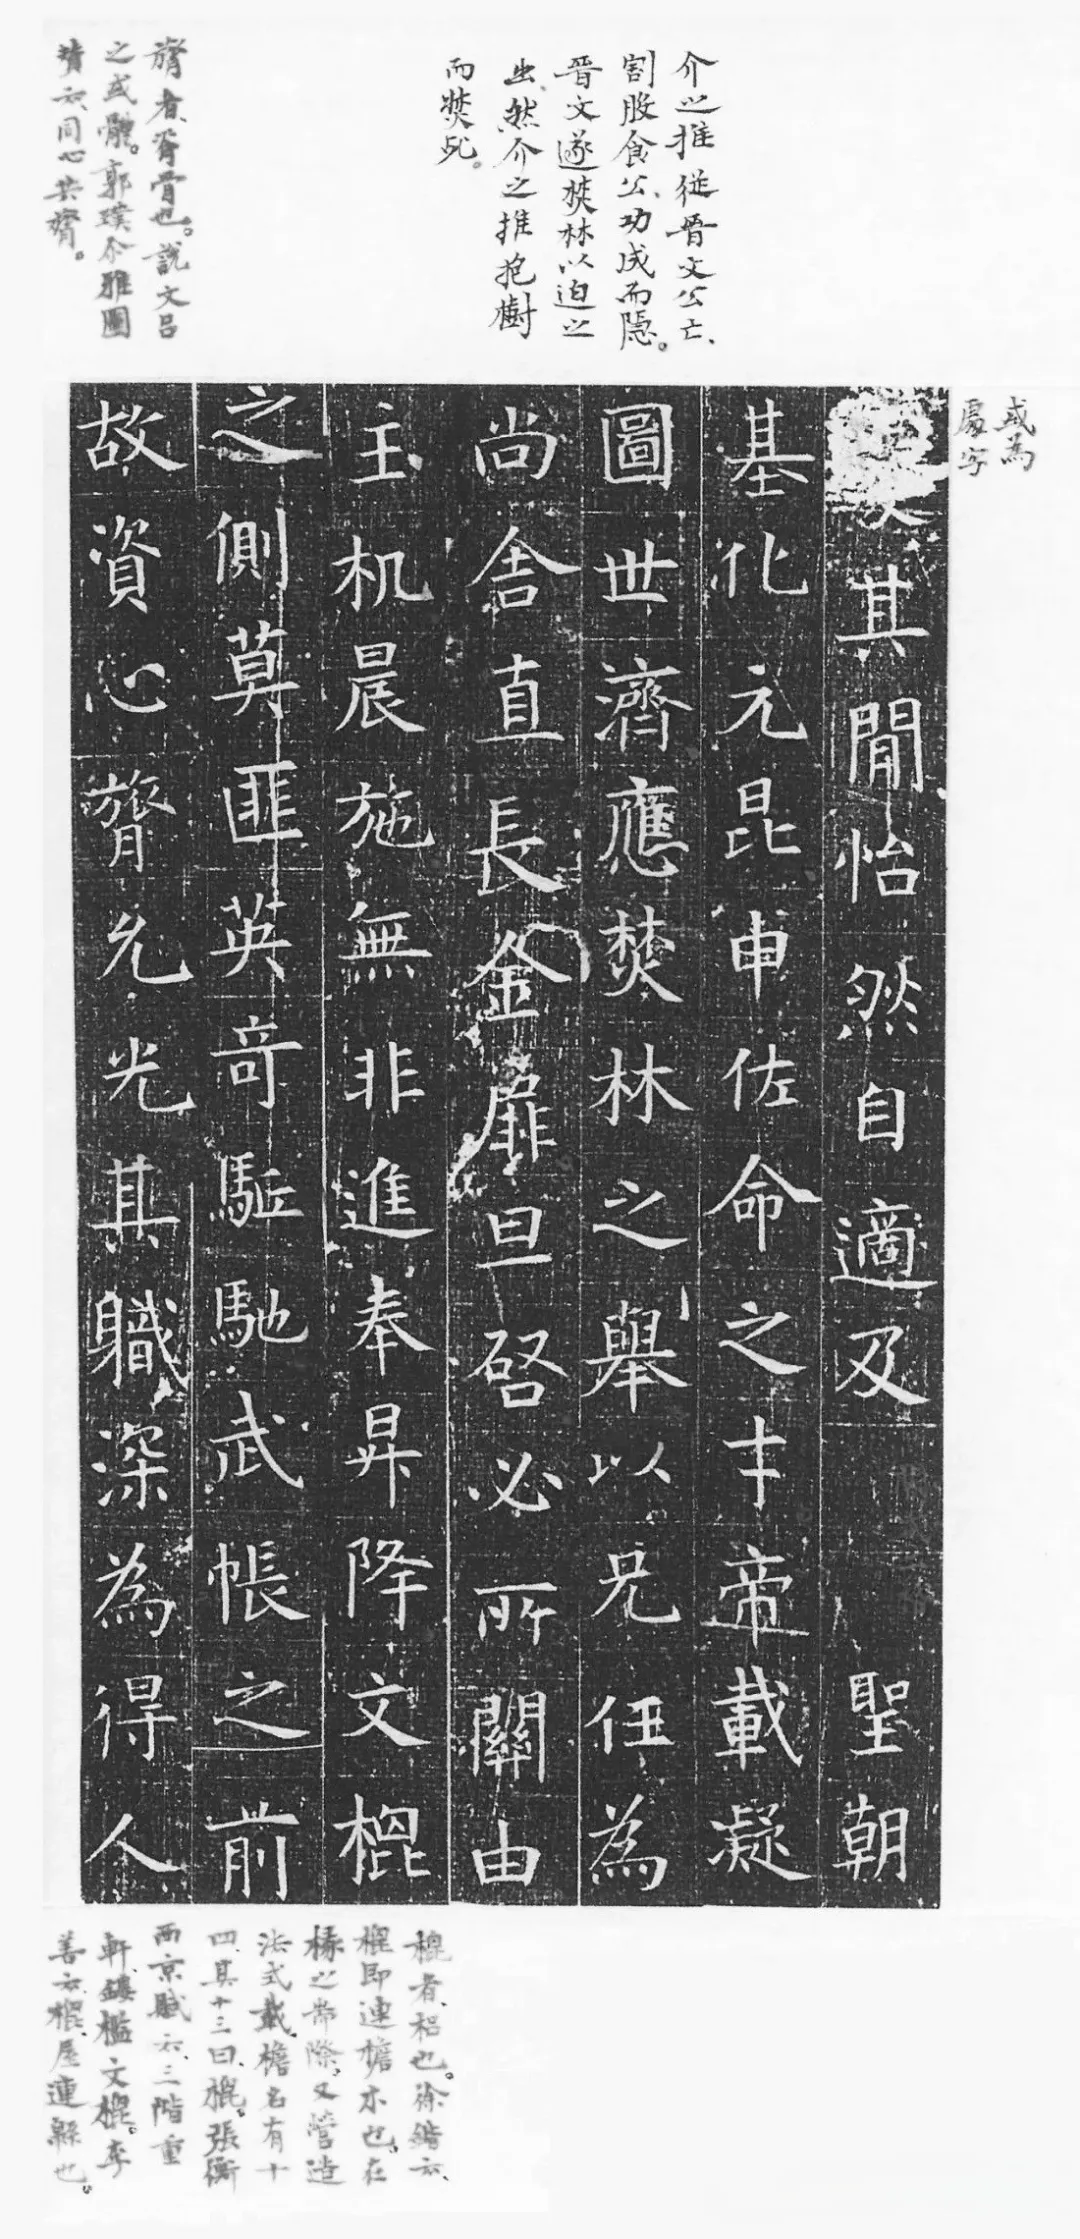 介之推從晉文公亡、
割股食公、功成而隱。
晉文遂焚林以迫之
出、然介之推抱樹
而焚死。
膂者、脊骨也。說文呂
之或體。郭璞尒雅圖
讚云、同心共膂。
或為
處字
其閒怡然自適及 聖朝
基化元昆申佐命之才帝載凝
圖世濟應焚林之舉以兄任為
尚舍直長金扉旦啓必所關由
主机晨施無非進奉昇降文棍
之側莫匪英奇駈馳武帳之前
故資心膂允光其職深為得人
棍者、梠也。徐鍇云、
棍即連檐木也。在
椽之耑際、又營造
法式載、檐名有十
四、其十三曰、棍。張衡
西京賦云、三階重
軒、鏤檻文棍。李
善云、棍、屋連緜也。